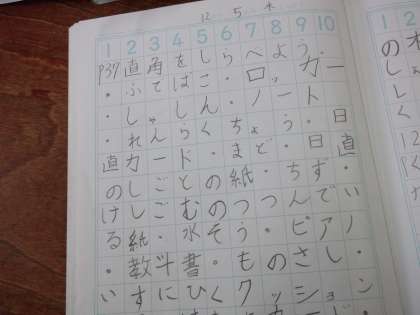 12 5 木
1 2 3 4 5 6 7 8 9 10
P37直角をしらべよう.
・ふではこ・ロッカー
・しゃしん・ノート
・れんらくちょう・日
直カード・まど・日直
のしごとの紙・ちず・
けしごむのつつんでい
る紙・水そう・ピアノ
・教斗書・ものさし・
いすにひくクッション
1 2